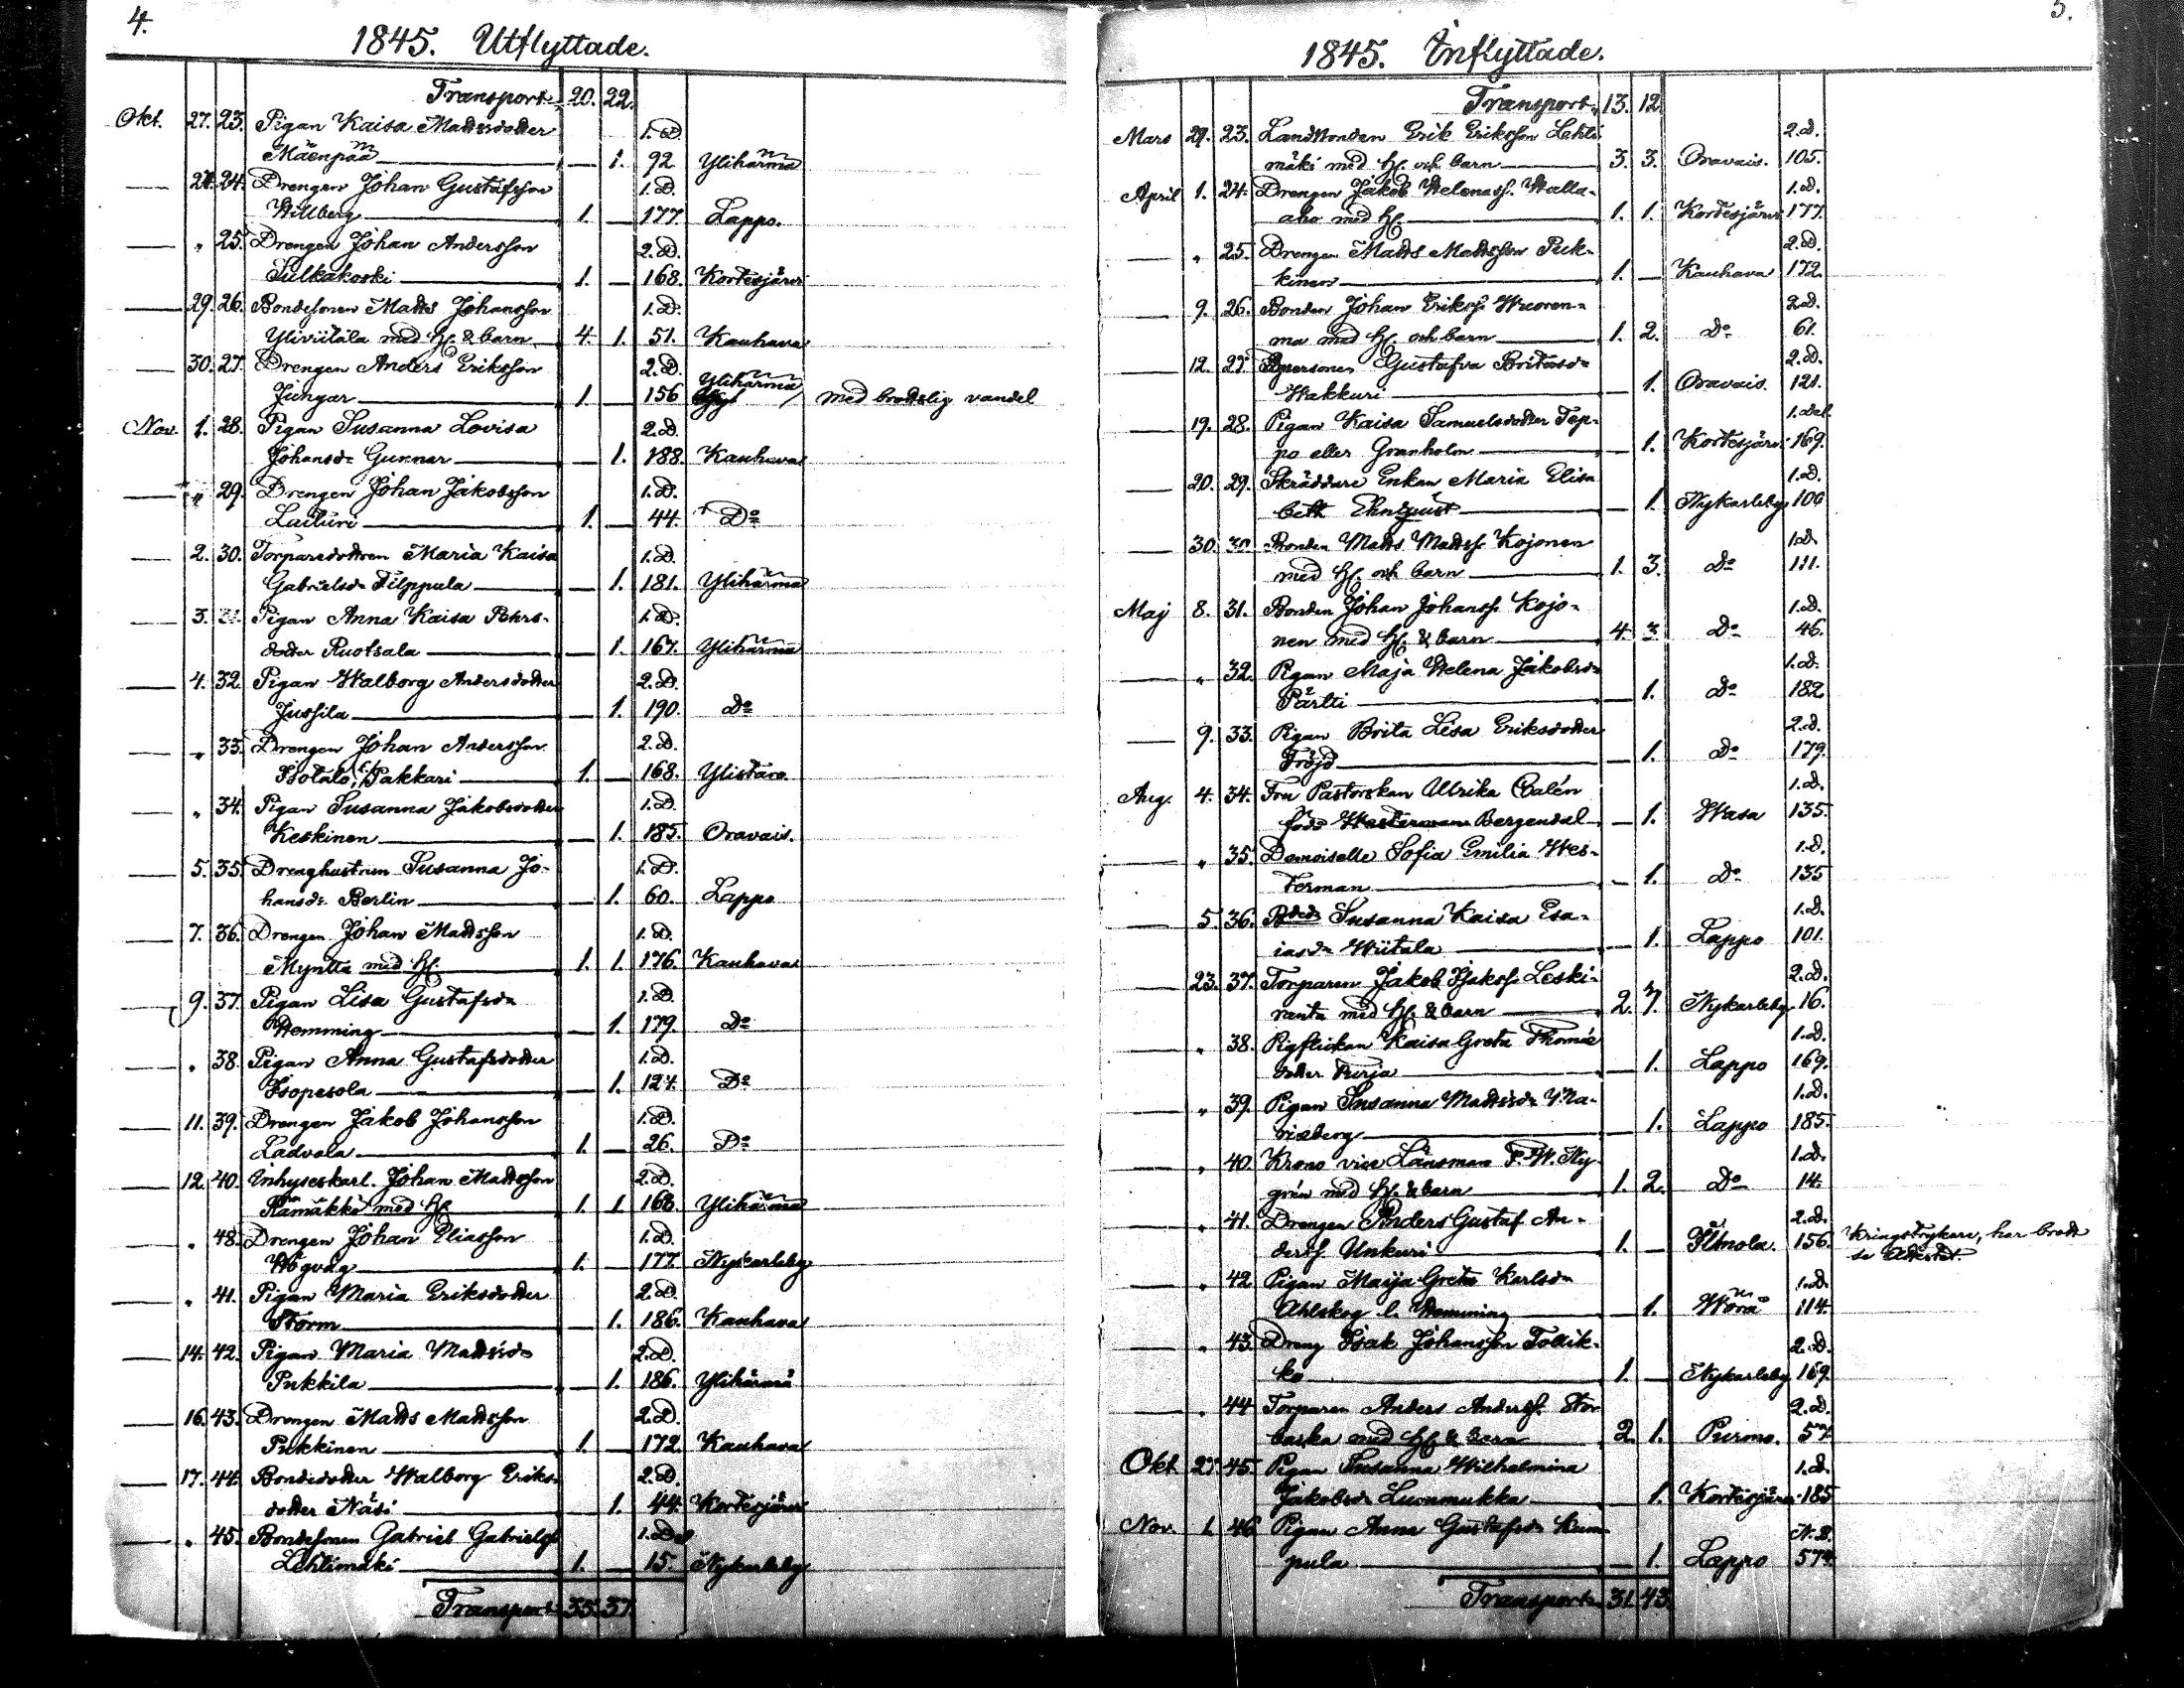 4.
1845. Utflyttade.
Transport 20. 22.
Okt. 27. 23. Pigan Kaisa Mattsdotter 1. D.
Mäenpää — 1. 92 Ylihärmä
— 27. 24. Drengen Johan Gustafsson 1. D.
Willberg 1. — 177. Lappo.
— „ 25. Drengen Johan Andersson 2. D.
Sulkakoski 1. — 168. Kortesjärvi
— 29. 26. Bondesonen Matts Johansson 1. D.
Yliviitala med H. & barn 4. 1. 51. Kauhava
— 30. 27. Drengen Anders Eriksson 2. D.
Jungar 1 — 156 Ylihärmä / med brottslig vandel
Nov. 1. 28. Pigan Susanna Lovisa 2. D.
Johansd:r Gunnar — 1. 188. Kauhava
— „ 29. Drengen Johan Jakobsson 1. D.
Lailuri 1. — 44. D:o
— 2. 30. Torparedottren Maria Kaisa 1. D.
Gabrielsd:r Filppula — 1. 181. Ylihärmä
— 3. 31. Pigan Anna Kaisa Pehrs- 1. D.
dotter Ruotsala — 1. 167. Ylihärmä
— 4. 32. Pigan Walborg Andersdotter 2. D.
Jussila — 1. 190. D:o
— „ 33. Drengen Johan Andersson 2. D.
Isotalo, l. Pakkari 1. — 168. Ylistaro
— „ 34. Pigan Susanna Jakobsdotter 1. D.
Keskinen — 1. 185. Oravais.
— 5. 35. Drenghustrun Susanna Jo- 1. D.
hansd:r Berlin — 1. 60. Lappo
— 7. 36. Drengen Johan Mattsson 1. D.
Myntti med H. 1. 1. 176. Kauhava
— 9. 37. Pigan Lisa Gustafsd:r 1. D.
Hemming — 1. 179. D:o
— „ 38. Pigan Anna Gustafsdotter 1. D.
Isopesola — 1. 127. D:o
— 11. 39. Drengen Jakob Johansson 1. D.
Ladvala 1. — 26. D:o
— 12. 40. Inhyseskarl. Johan Mattsson 2. D.
Rämäkkö med H. 1 1 168 Ylihärmä
— „ 48. Drengen Johan Eliasson 1. D.
Högväg 1. — 177. Nykarleby
— „ 41. Pigan Maria Eriksdotter 2. D.
Storm — 1. 186. Kauhava
— 14. 42. Pigan Maria Mattsd:r 2. D.
Pukkila — 1. 186. Ylihärmä
— 16. 43. Drengen Matts Mattsson 2. D.
Pukkinen 1. — 172 Kauhava
— 17. 44. Bondedotter Walborg Eriks- 2. D.
dotter Näsi 1. 44. Kortesjärvi
— „ 45. Bondesonen Gabriel Gabrielss. 1. Del
Lehtimäki 1. — 15. Nykarleby
Transport 35. 37.
5.
1845. Inflyttade.
Transport 13. 12.
Mars 29. 23. Landbonden Erik Eriksson Lehti- 2. D.
mäki med H. och barn 3. 3. Oravais. 105.
April 1. 24. Drengen Jakob Helenass. Walla- 1. D.
aho med H. 1. 1. Kortesjärvi 177.
— „ 25. Drengen Matts Mattsson Puk- 2. D.
kinen 1. — Kauhava 172.
— 9. 26. Bonden Johan Erikss. Wuoren- 2. D.
ma med H. och barn 1. 2. D:o 61.
— 12. 27. Bpersonen Gustafva Britasd:r 2. D.
Wakkuri — 1. Oravais. 121.
— 19. 28. Pigan Kaisa Samuelsdotter Tep- 1. Del.
po eller Granholm — 1. Kortesjärvi 169.
— 20. 29. Skräddare Enkan Maria Elisa 1. D.
beth Ehnquist — 1. Nykarleby 100
— 30. 30. Bonden Matts Mattss. Kojonen 1. D.
med H. och barn 1. 3. D:o 111.
Maj 8. 31. Bonden Johan Johanss. Kojo- 1. D.
nen med H. & barn 4. 3. D:o 46.
— „ 32. Pigan Maja Helena Jakobsd:r 1. D.
Pärtti — 1. D:o 182.
— 9. 33. Pigan Brita Lisa Eriksdotter 2. D.
Fröjd — 1. D:o 179.
Aug. 4. 34. Fru Pastorskan Ulrika Calén 1. D.
född Westerman Bergendal — 1. Wasa 135.
— „ 35. Demoiselle Sofia Emilia Wes- 1. D.
terman — 1. D:o 135
— 5. 36. Susanna Kaisa Esa- 1. D.
iasd:r Wiitala — 1. Lappo 101.
23. 37. Torparen Jakob Isakss. Leski- 2. D.
ranta med H. & barn 2. 7. Nykarleby 16.
— „ 38. Pigflickan Kaisa Greta Thomas 1. D.
dotter Turja — 1. Lappo 169.
— „ 39. Pigan Susanna Mattsd:r 1. D.
1. Lappo 185.
„ 40. Krono vice Länsman F. W. Ny- 1. D.
grén med H. & barn 1. 2. D:o 14.
„ 41. Drengen Anders Gustaf An- 2. D.
derss. Unkuri 1. — Ilmola. 156. Kringstrykare, har brott
se Attestet.
„ 42 Pigan Maija Greta Karlsd:r 1. D.
Ahlskog l. Hemming 1. Wörå 114.
„ 43. Dreng Isak Johansson Tollik- 2. D.
ko 1. — Nykarleby 169.
„ 44 Torparen Anders Anderss. Stor- 2. D.
backa med H. & barn 2. 1. Purmo. 57.
Okt 27. 45. Pigan Susanna Wilhelmina 1. D.
Jakobsd:r Luomukka 1. Kortesjärvi 185
Nov. 1. 46. Pigan Anna Gustafsd:r Kam-
pula — 1. Lappo 574.
Transport 31. 43.